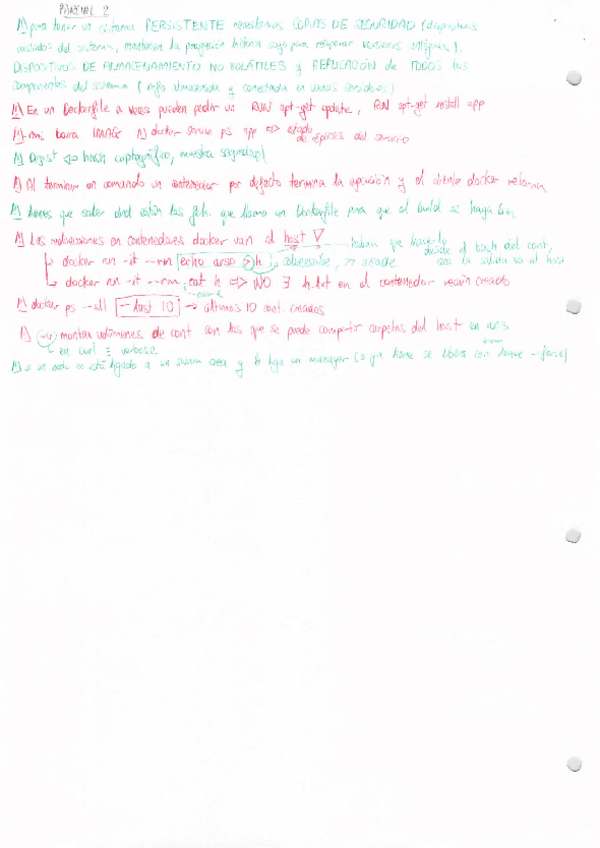 PARCIAL 2
para tener un sistema PERSISTENTE necesitamos COPIAS DE SEGURIDAD (dispositivos
aislados del sistema, mantienen la progresión histórica sirve para recuperar versiones antiguas),
DISPOSITIVOS DE ALMACENAMIENTO NO VOLÁTILES y REPLICACIÓN de TODOS los
componentes del sistema (info almacenada y conectada en varios servidores)
En un Dockerfile a veces pueden pedir un RUN apt-get update, RUN apt-get install app
rmi borra IMAGE docker service ps app => estado de réplicas del servicio
Digest <=> hash criptográfico, muestra seguridad
Al terminar un comando un contenedor por defecto termina la ejecución y el cliente docker retorna
tienes que saber dnd están los fich. que llama un Dockerfile para que el build se haga bien
las redirecciones en contenedores docker van al host
habría que hacerlo desde el bash del cont,
docker run -it --rm echo aviso > h, sobreescribe, >> añade
docker run -it --rm cat h => NO ∃ h.txt en el contenedor recién creado
docker ps --all --last 10 → últimos 10 cont. creados
(-v) montan volúmenes de cont con los que se puede compartir carpetas del host en
en curl ≡ verbose
si un nodo no está ligado a un swarm crea y te liga un manager (o ya tiene se libera con leave --force)